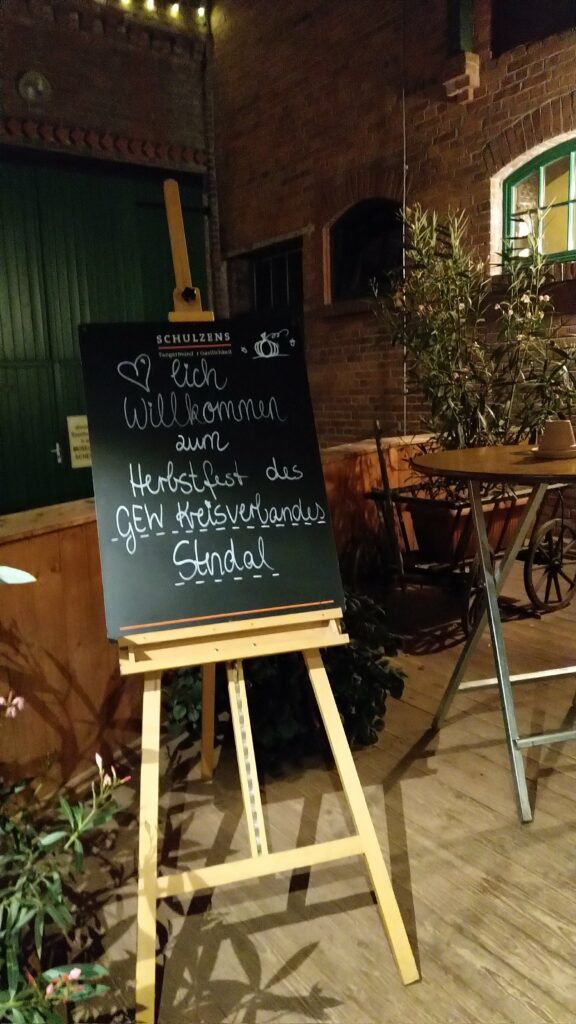 SCHULZENS
Tangermünder Gastlichkeit
♡lich
Willkommen
zum
Herbstfest des
GEW Kreisverbandes
Stndal